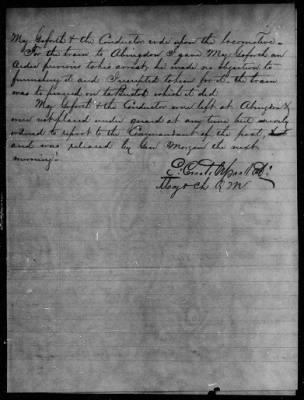 Maj Goforth & the Conductor rode upon the locomotive.
For the train to Abingdon I gave Maj Goforth an
order previous to his arrest, he made no objection to
furnishing it and I receipted to him for it. the train
was to proceed on to Bristol which it did
Maj Goforth & the Conductor were left at Abingdon &
were not placed under guard at any time but merely
ordered to report to the Commandant of the post,
and was released by Gen Morgan the next
morning.
Maj & Ch Q M